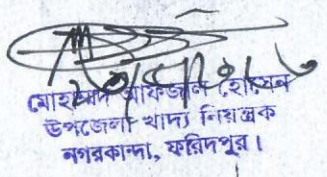 মোহাম্মদ আফজাল হোসেন
উপজেলা খাদ্য নিয়ন্ত্রক
নগরকান্দা, ফরিদপুর।